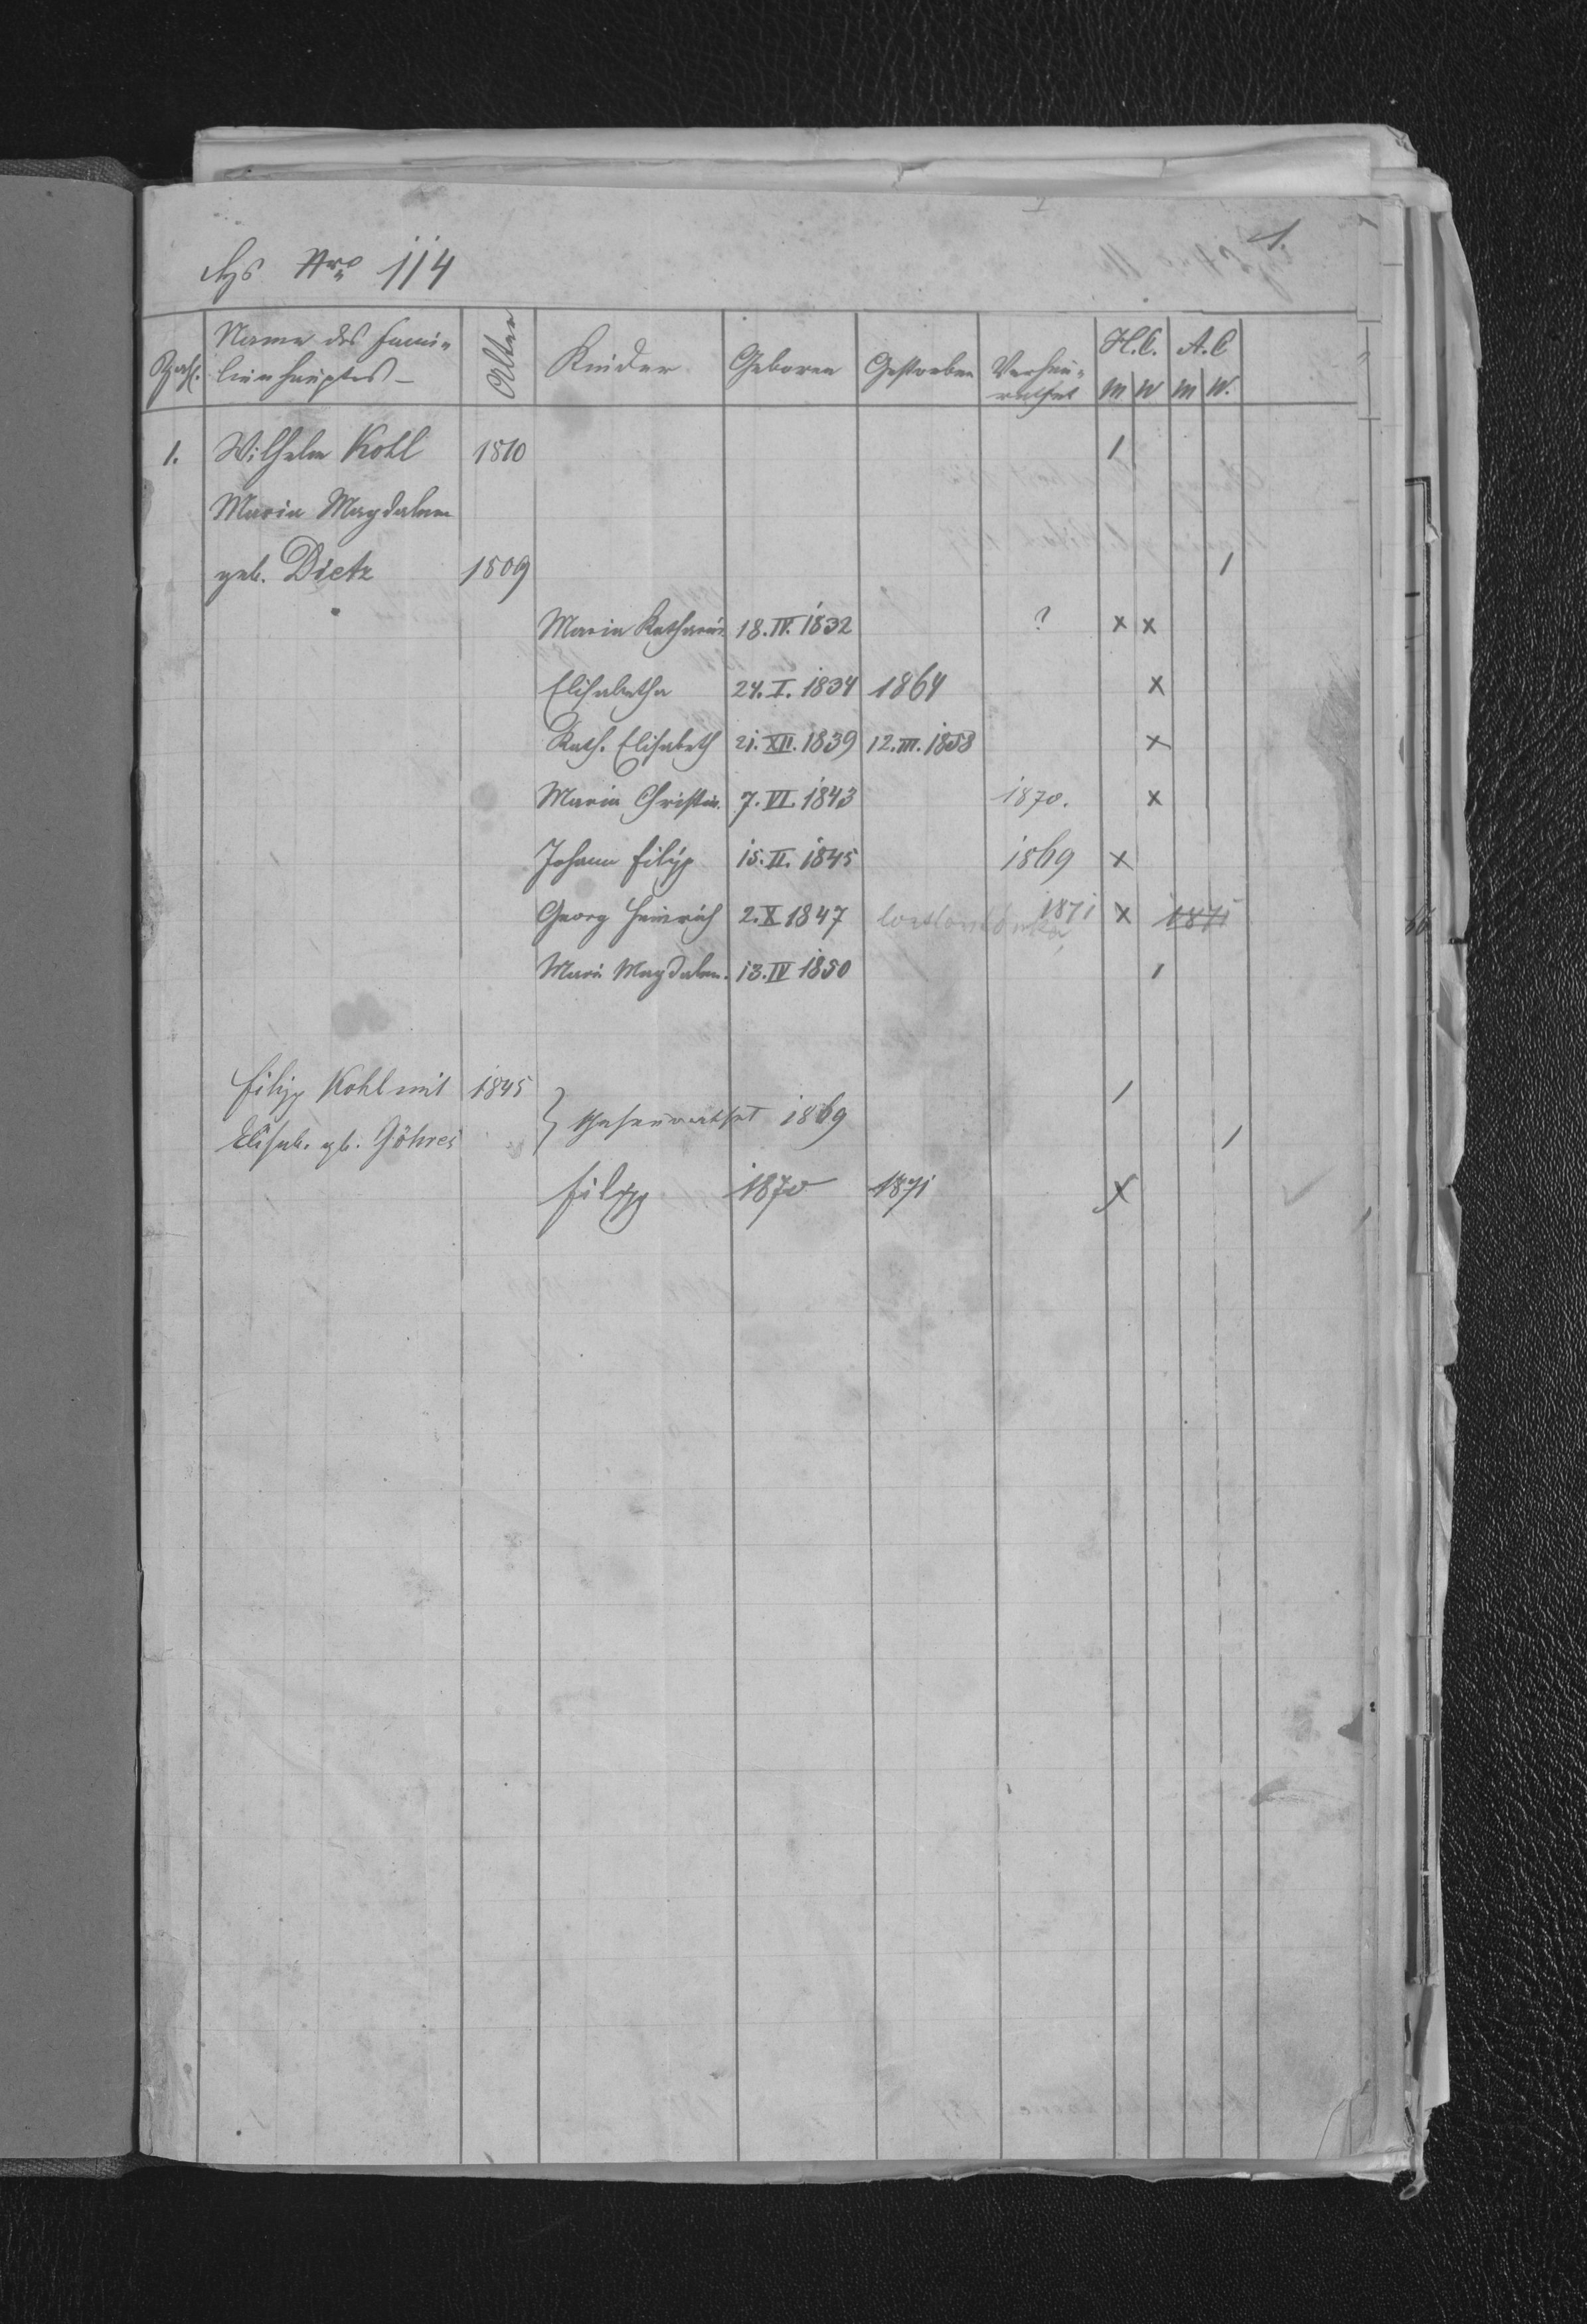 Hs Nro 114
1.
Zahl. Name des Fami- Alter Kinder Geboren Gestorben Verheu- H.C. A.C
lienhauptes - rathet m w m w.
1. Wilhelm Kohl 1810 1
Maria Magdalena
geb. Dietz 1809 1
Maria Katharin. 18. IV. 1832 ? x x
Elisabetha 24. I. 1834 1864 x
Kath. Elisabeth 21. XII. 1839 12. III. 1858 x
Maria Christin. 7. VI. 1843 1870. x
Johann Filipp 15. II. 1845 1869 x
Georg Heinrich 2. X 1847 1871 x 1871
Mari Magdalen. 13. IV 1850 1
Filipp Kohl mit 1845 1
Elisab. gb. Göhres } Geheurathet 1869 1
Filipp 1870 1871 x